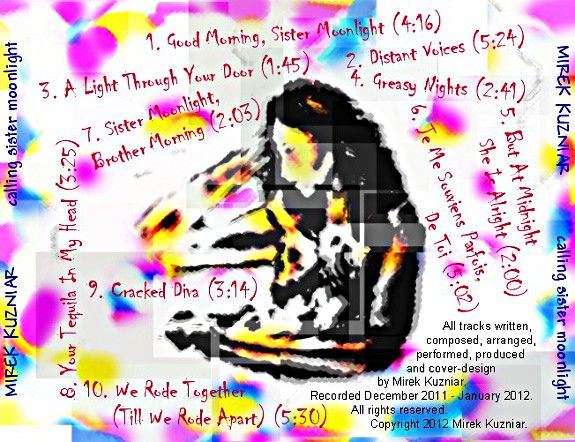 1. Good Morning, Sister Moonlight (4:16)
2. Distant Voices (5:24)
3. A Light Through Your Door (1:45)
4. Greasy Nights (2:41)
5. But At Midnight
She Is Alright (2:00)
6. Je Me Souviens Parfois,
De Toi (5:02)
7. Sister Moonlight,
Brother Morning (2:03)
8. Your Tequila In My Head (3:25)
9. Cracked Diva (3:14)
10. We Rode Together
(Till We Rode Apart) (5:30)
All tracks written,
composed, arranged,
performed, produced
and cover-design
by Mirek Kuzniar.
Recorded December 2011 - January 2012.
All rights reserved.
Copyright 2012 Mirek Kuzniar.
MIREK KUZNIAR
calling sister moonlight
MIREK KUZNIAR
calling sister moonlight